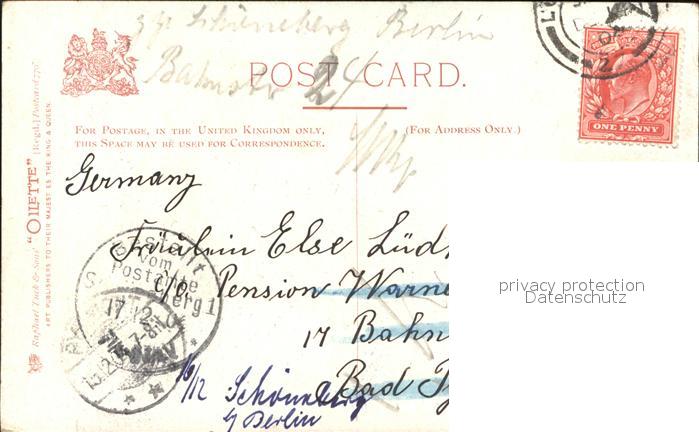 Schöneberg Berlin
Bahnstr 24
POST CARD.
FOR POSTAGE, IN THE UNITED KINGDOM ONLY,
THIS SPACE MAY BE USED FOR CORRESPONDENCE.
(FOR ADDRESS ONLY.)
ONE PENNY
Raphael Tuck & Sons' "OILETTE" [Regd.] Postcard
ART PUBLISHERS TO THEIR MAJESTIES THE KING & QUEEN.
Germany
Fräulein Else Lüd
c/o Pension Warne
17 Bahn
Bad
Bestellt
vom
Postamte
berg 1
17 12
7-8
16/12 Schöneberg
b/ Berlin
privacy protection
Datenschutz